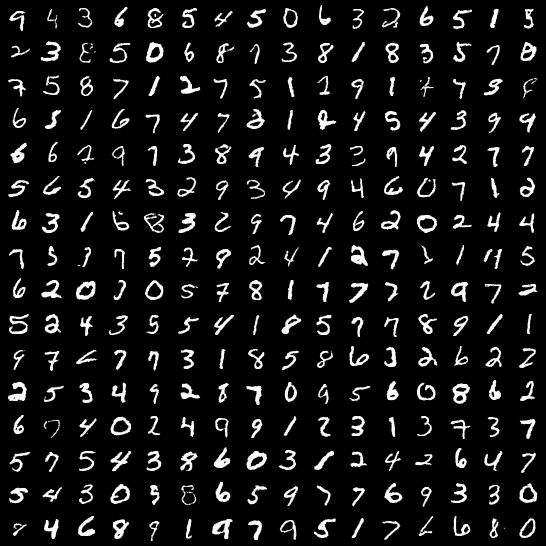 9 4 3 6 8 5 4 5 0 6 3 2 6 5 1 5
2 3 8 5 0 6 8 7 3 8 1 8 3 5 7 0
7 5 8 7 1 2 7 5 1 1 9 1 7 7 5 8
6 5 1 6 7 4 7 2 1 2 4 5 4 3 9 9
6 6 7 9 7 3 8 9 4 3 3 9 4 2 7 7
5 6 5 4 3 2 9 3 4 9 4 6 0 7 1 2
6 3 1 6 8 3 2 9 7 4 6 2 0 2 4 4
7 3 3 7 5 7 9 2 4 1 2 7 1 1 4 5
6 2 0 3 0 5 7 8 1 7 7 7 2 9 7 2
5 2 4 3 5 5 4 1 8 5 7 7 8 9 1 1
9 7 2 7 7 3 1 8 5 8 6 3 2 6 2 2
2 5 3 4 9 2 8 7 0 9 5 6 0 8 6 2
6 7 4 0 2 4 9 9 1 2 3 1 3 7 3 7
5 7 5 4 3 8 6 0 3 1 2 4 2 6 4 7
5 4 3 0 5 8 6 5 9 7 7 6 9 3 3 0
8 4 6 8 9 1 9 7 9 5 1 7 6 6 8 0